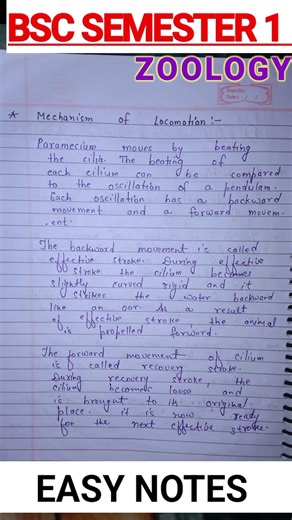 BSC SEMESTER 1
ZOOLOGY
* Mechanism of Locomotion :-
Paramecium moves by beating
the cilia. The beating of
each cilium can be compared
to the oscillation of a pendulam.
Each oscillation has a backward
movement and a forward movem-
ent.
The backward movement is called
effective stroke. During effective
stroke the cilium becomes
slightly curved rigid and it
strikes the water backward
like an oar. As a result
of effective stroke, the animal
is propelled forward.
The forward movement of cilium
is called recovery stroke.
During recovery stroke, the
cilium becomes loose and
is brought to its original
place. it is now ready
for the next effective stroke.
EASY NOTES